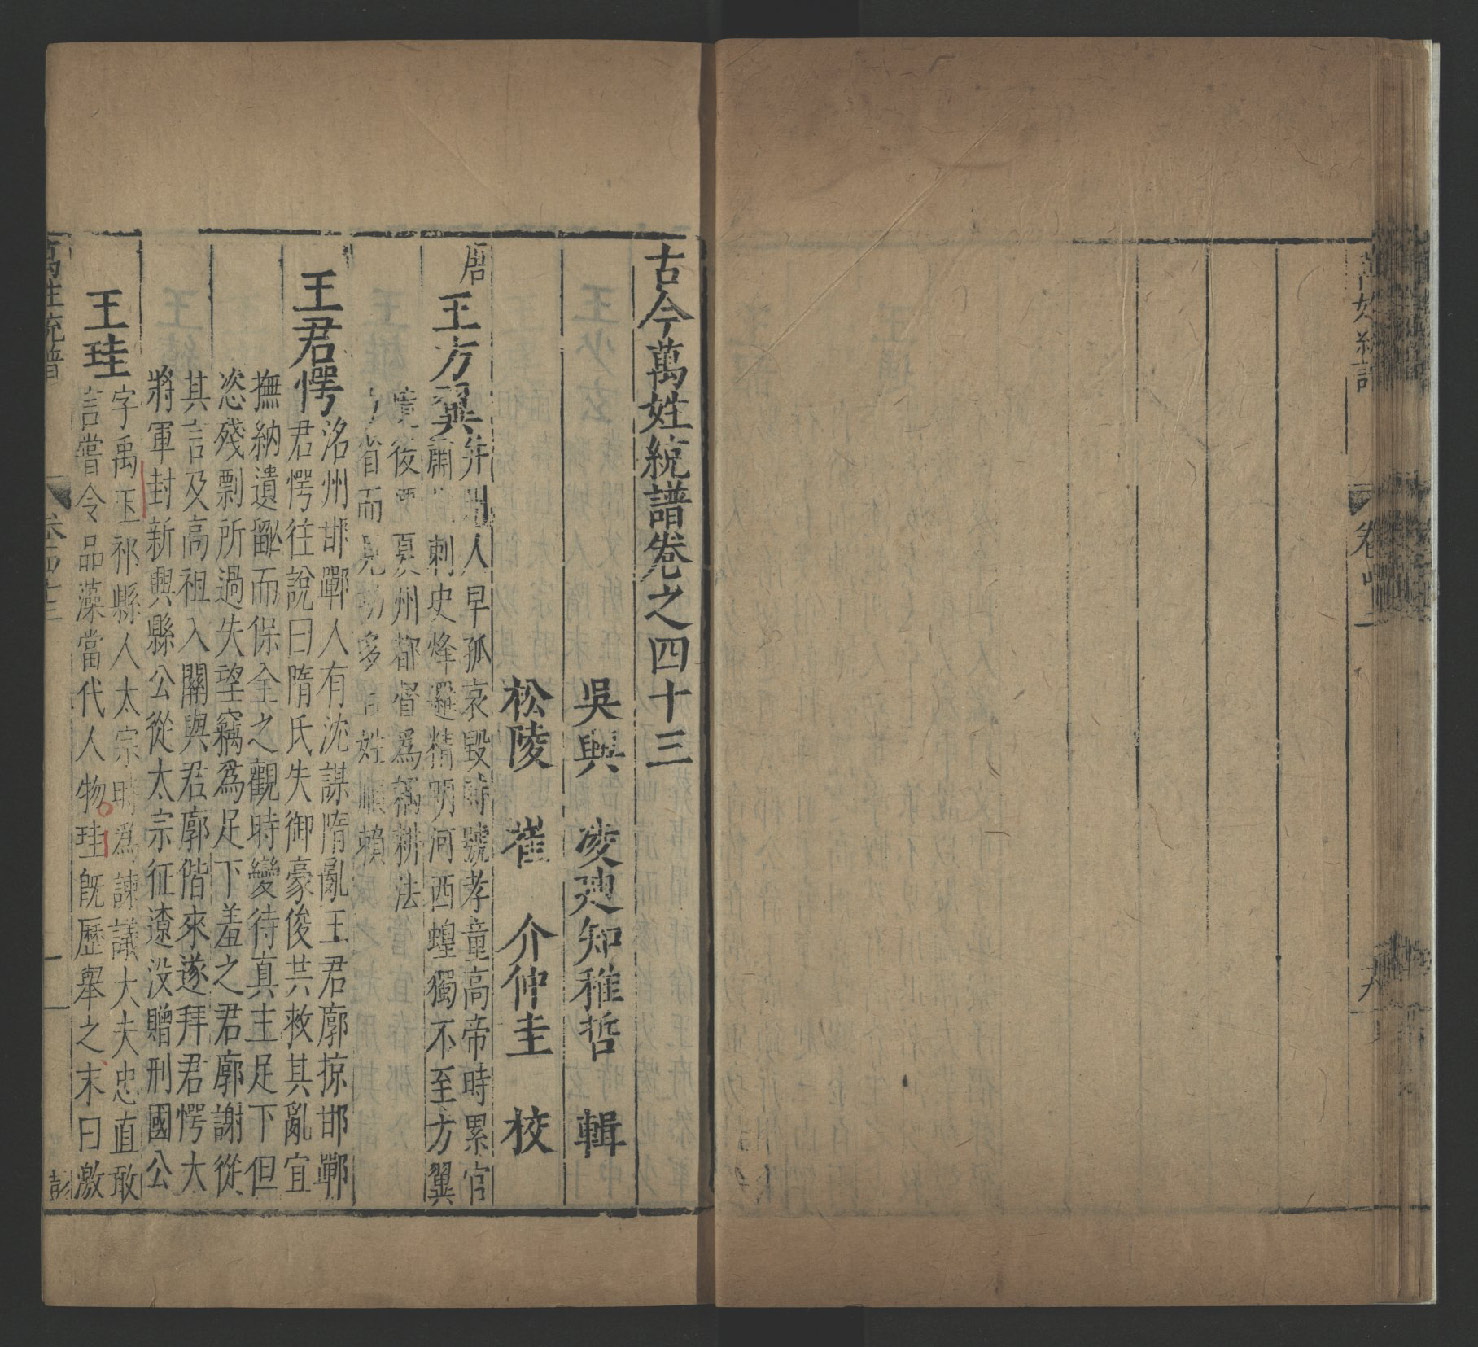 古今萬姓統譜卷之四十三
吳興 凌廸知稚哲 輯
松陵 崔 介仲圭 校
唐
王方翼
并州人早孤哀毀時號孝童高帝時累官
肅州刺史烽邏精明河西蝗獨不至方翼
境後遷夏州都督爲耦耕法
力省而見功多百姓順賴
王君愕
洺州邯鄲人有沈謀隋亂王君廓掠邯鄲
君愕往說曰隋氏失御豪俊共救其亂宜
撫納遺甿而保全之觀時變待真主足下但
恣殘剽所過失望竊爲足下羞之君廓謝從
其言及高祖入關與君廓偕來遂拜君愕大
將軍封新興縣公從太宗征遼没贈刑國公
王珪
字禹玉祁縣人太宗時爲諫議大夫忠直敢
言嘗令品藻當代人物珪旣歷舉之末曰激
萬姓統譜
卷四十三